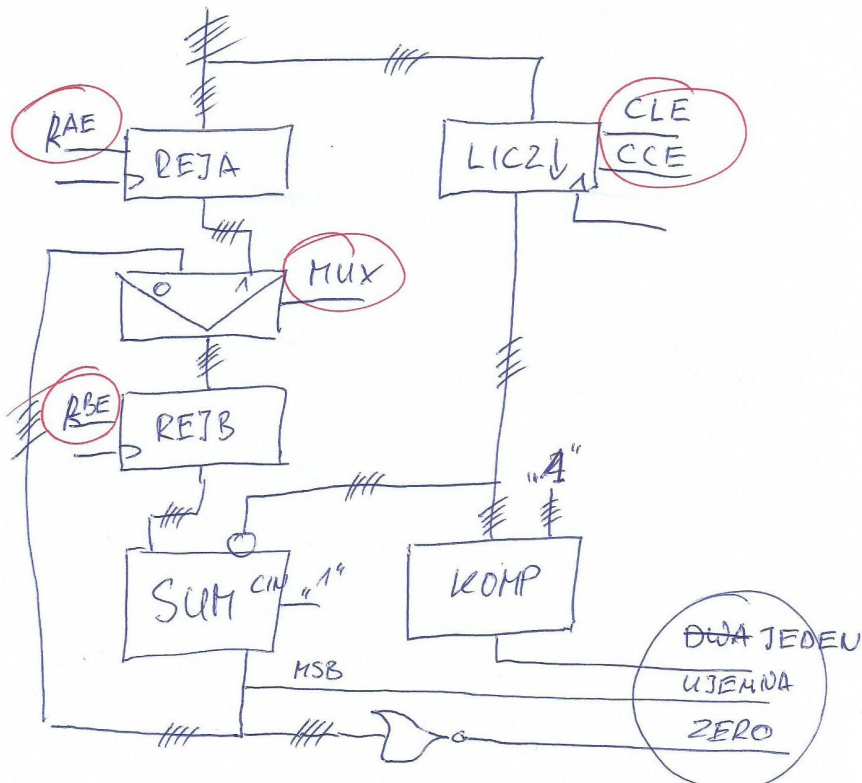 CLE
RAE
REJA
LICZ↓
CCE
0
1
MUX
RBE
REJB
„1“
SUM
CIN
„1“
KOMP
DWA JEDEN
MSB
UJEMNA
ZERO